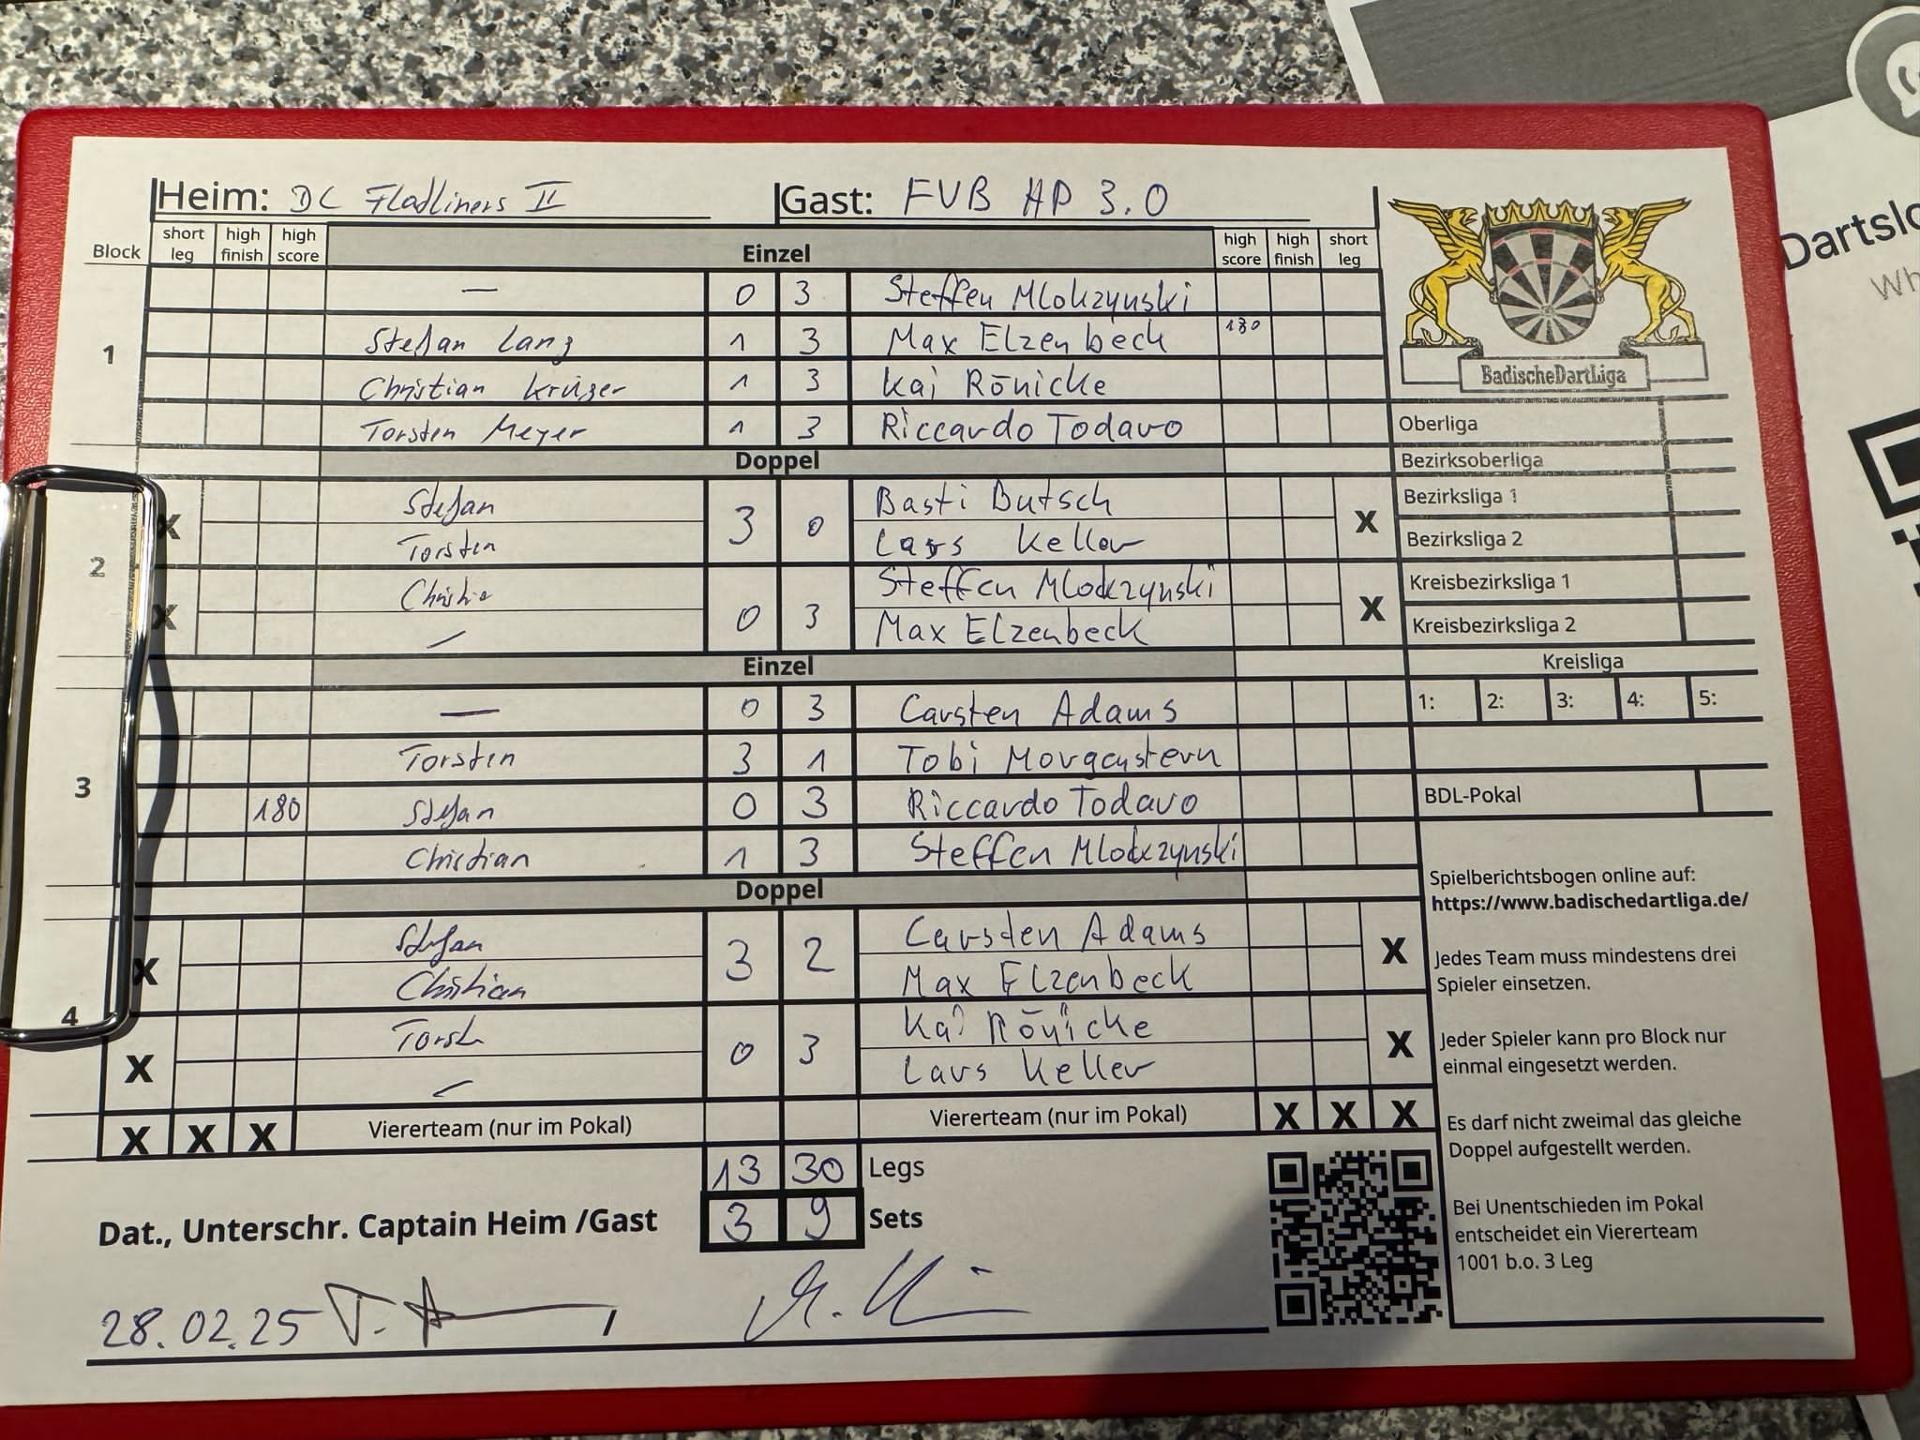 Heim: DC Fladliners II Gast: FVB HP 3.0
Block short leg high finish high score Einzel high score high finish short leg
1
— 0 3 Steffen Mlokzynski
Stefan Lang 1 3 Max Elzenbeck 180
Christian Krüger 1 3 Kai Rönicke
Torsten Meyer 1 3 Riccardo Todavo
Doppel
2
X Stefan 3 0 Basti Butsch X
Torsten Lars Keller
X Christia 0 3 Steffen Mlodczynski X
— Max Elzenbeck
Einzel
3
— 0 3 Carsten Adams
Torsten 3 1 Tobi Morgenstern
180 Stefan 0 3 Riccardo Todavo
Christian 1 3 Steffen Mlodczynski
Doppel
4
X Stefan 3 2 Carsten Adams X
Christian Max Elzenbeck
X Torst 0 3 Kai Rönicke X
— Lars Keller
X X X Viererteam (nur im Pokal) Viererteam (nur im Pokal) X X X
13 30 Legs
3 9 Sets
Dat., Unterschr. Captain Heim /Gast
28.02.25
BadischeDartLiga
Oberliga
Bezirksoberliga
Bezirksliga 1
Bezirksliga 2
Kreisbezirksliga 1
Kreisbezirksliga 2
Kreisliga
1: 2: 3: 4: 5:
BDL-Pokal
Spielberichtsbogen online auf:
https://www.badischedartliga.de/
Jedes Team muss mindestens drei
Spieler einsetzen.
Jeder Spieler kann pro Block nur
einmal eingesetzt werden.
Es darf nicht zweimal das gleiche
Doppel aufgestellt werden.
Bei Unentschieden im Pokal
entscheidet ein Viererteam
1001 b.o. 3 Leg